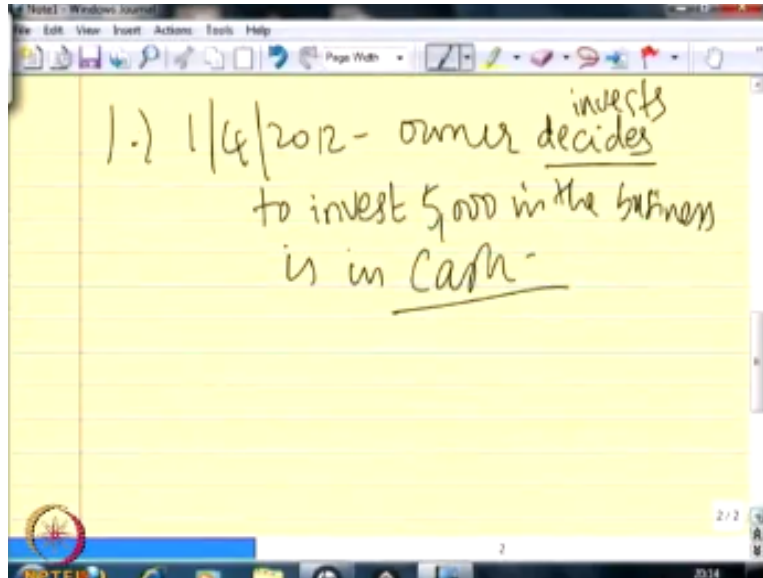 Note1 - Windows Journal
File Edit View Insert Actions Tools Help
Page Width
invests
1.) 1/4/2012 - owner decides
to invest 5,000 in the business
is in Cash -
2/2
2
NPTEL
20:14